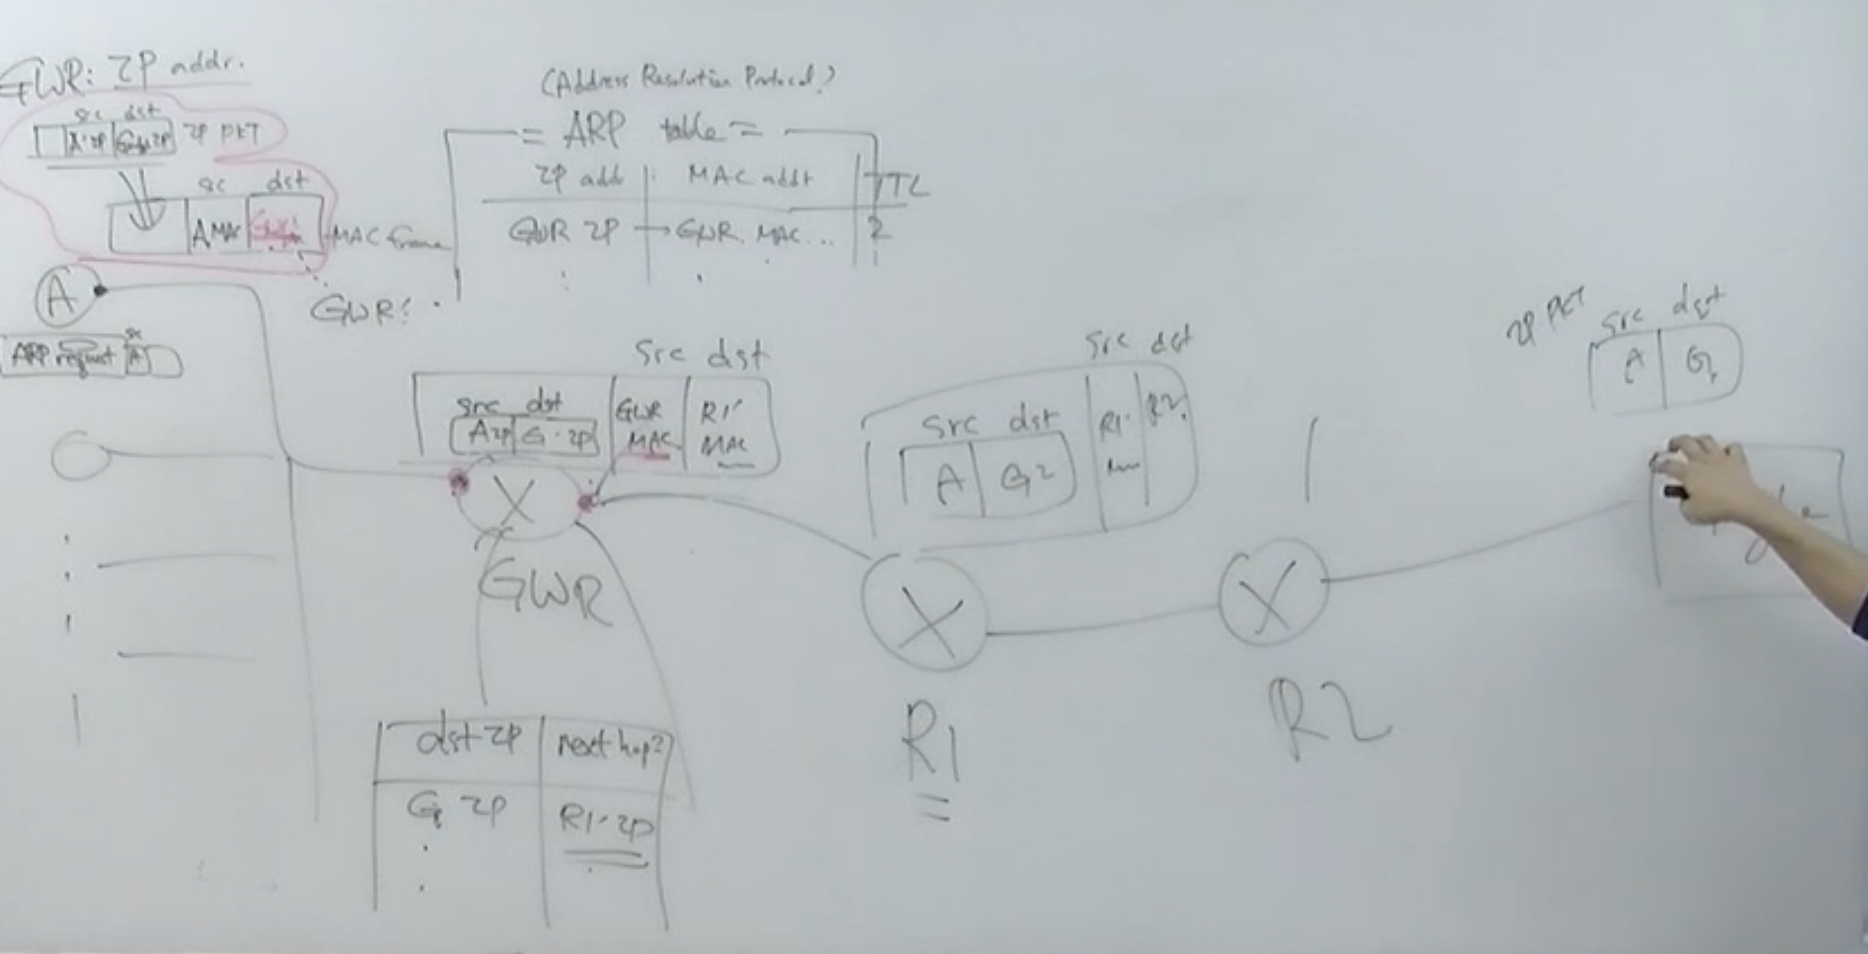 GWR: IP addr.
src dst
A·IP GWR IP IP PKT
src dst
A MAC MAC frame
GWR?
A
ARP request src A
(Address Resolution Protocol)
= ARP table =
IP add MAC addr TTL
GWR IP → GWR MAC... 2
src dst
src dst GWR R1'
A IP G·IP MAC MAC
X
GWR
dst IP next hop?
G IP R1·IP
src dst
src dst R1· R2.
A G
X
R1
X
R2
IP PKT src dst
A G